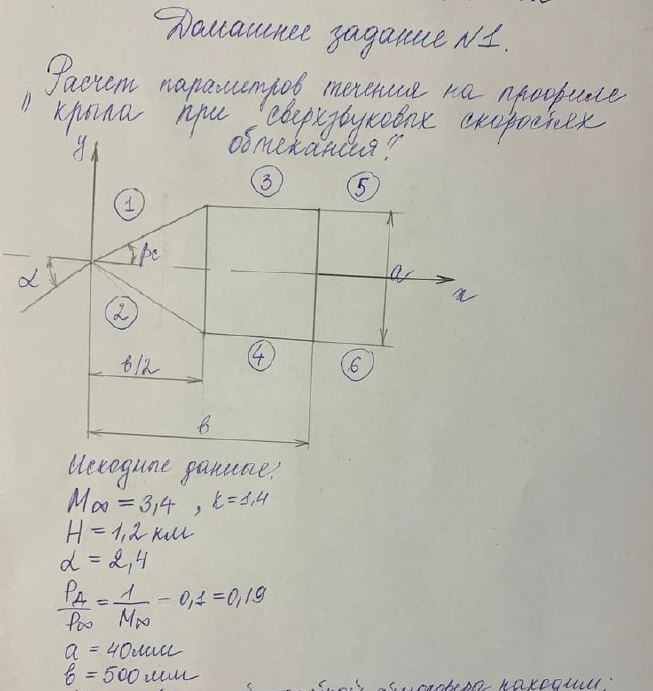 Домашнее задание N1.
"Расчет параметров течения на профиле
крыла при сверхзвуковых скоростях
обтекания"
y
1
3
5
βc
α
a
x
2
4
6
в/2
в
Исходные данные:
M∞ = 3,4 , k=1,4
H = 1,2 км
α = 2,4
Pд/P∞ = 1/M∞ - 0,1 = 0,19
a = 40мм
в = 500мм
находим: